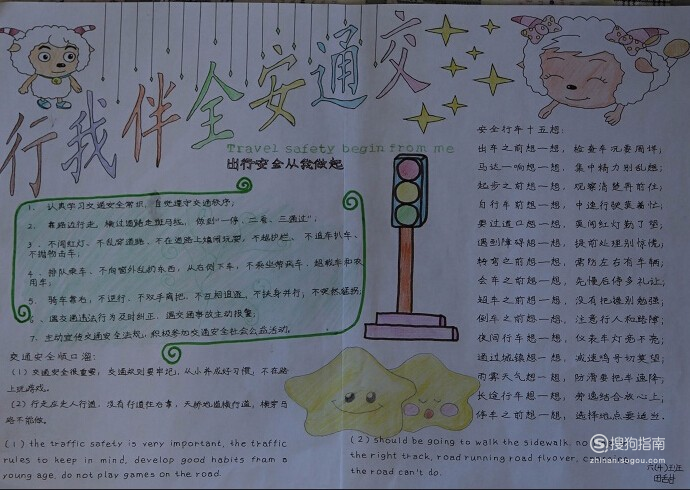 行我伴全安通交
Travel safety begin from me
出行安全从我做起
1、认真学习交通安全常识，自觉遵守交通秩序；
2、靠路边行走，横过道路走斑马线，做到“一停、二看、三通过”；
3、不闯红灯、不乱穿道路、不在道路上嬉闹玩耍、不越护栏、不追车扒车、
不抛物击车。
4、排队乘车、不向窗外乱扔东西，从右侧下车，不乘坐带病车、超载车和农
用车；
5、骑车靠右，不逆行、不双手离把、不互相追逐、不扶身并行；不突然猛拐；
6、遇交通违法行为及时纠正、遇交通事故主动报警；
7、主动宣传交通安全法规，积极参加交通安全社会公益活动。
交通安全顺口溜：
(1)交通安全很重要，交通规则要牢记，从小养成好习惯，不在路
上玩游戏。
(2)行走应走人行道，没有行道往右靠，天桥地道横行道，横穿马
路不能做。
(1) the traffic safety is very important, the traffic
rules to keep in mind, develop good habits from a
young age, do not play games on the road.
安全行车十五想：
出车之前想一想，检查车况要周详；
马达一响想一想，集中精力别乱想；
起步之前想一想，观察清楚再前住；
自行车前想一想，中速行驶莫着忙；
要过道口想一想，莫闯红灯勤了望；
遇到障碍想一想，提前处理别惊慌；
转弯之前想一想，需防左右有车辆；
会车之前想一想，先慢后停多礼让；
超车之前想一想，没有把握别勉强；
倒车之前想一想，注意行人和路障；
夜间行车想一想，仪表车灯亮不亮；
通过城镇想一想，减速鸣号切莫望；
雨雾天气想一想，防滑要把车速降；
长途行车想一想，劳逸结合放心上；
停车之前想一想，选择地点要适当.
(2) should be going to walk the sidewalk, no
the right track, road running road flyover,
the road can't do.
搜狗指南
zhinan.sogou.com